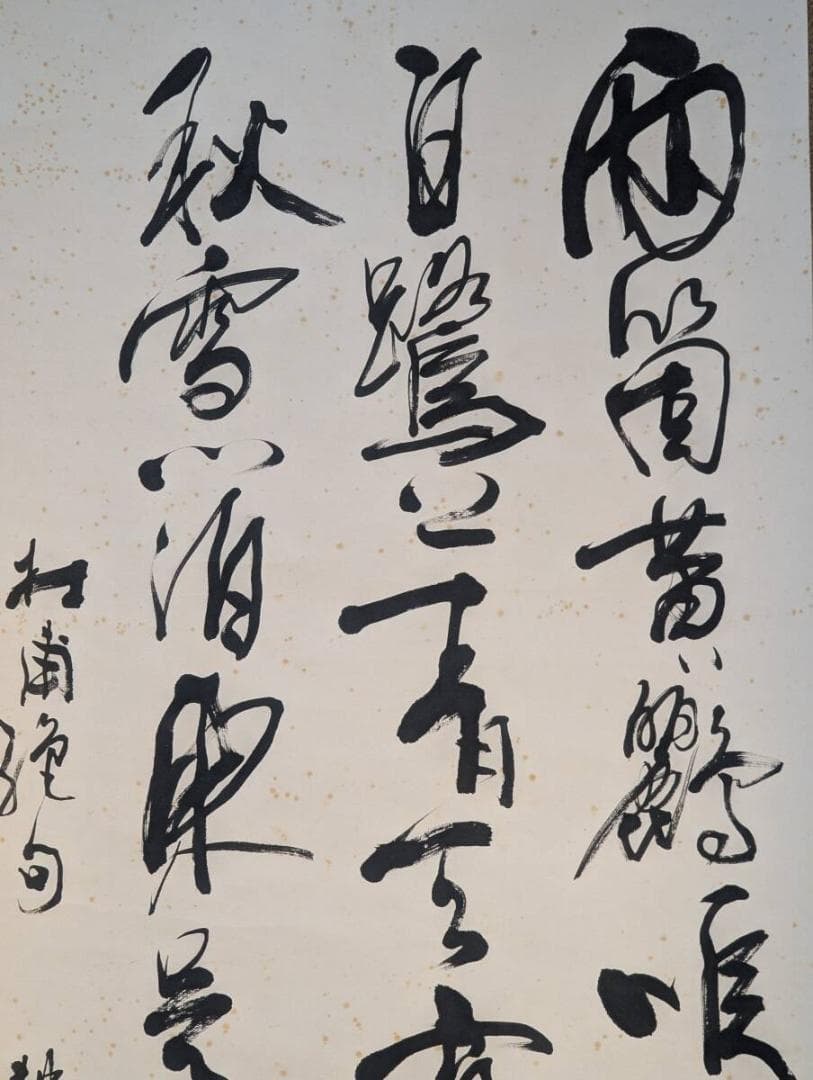 兩箇黃鸝鳴
白鷺上青天
秋雪門泊東吳
杜甫絕句